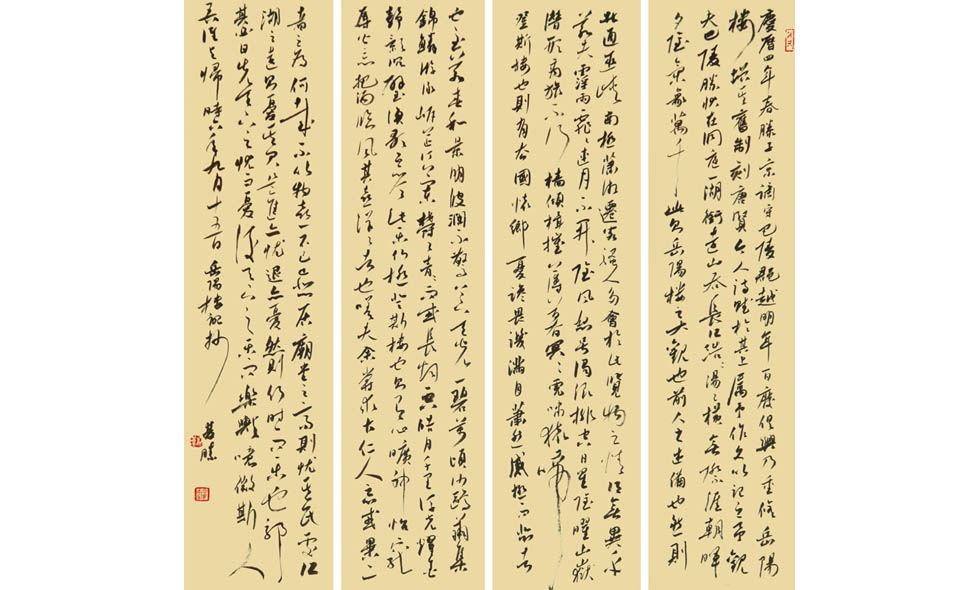 慶曆四年春滕子京謫守巴陵郡越明年百廢俱興乃重修岳陽
樓增其舊制刻唐賢今人詩賦於其上屬予作文以記之予觀
夫巴陵勝狀在洞庭一湖銜遠山吞長江浩浩湯湯橫無際涯朝暉
夕陰氣象萬千此則岳陽樓之大觀也前人之述備也然則
北通巫峽南極瀟湘遷客騷人多會於此覽物之情得無異乎
若夫霪雨霏霏連月不開陰風怒號濁浪排空日星隱曜山嶽
潛形商旅不行檣傾楫摧薄暮冥冥虎嘯猿啼
登斯樓也則有去國懷鄉憂讒畏譏滿目蕭然感極而悲者
也至若春和景明波瀾不驚上下天光一碧萬頃沙鷗翔集
錦鱗游泳岸芷汀蘭郁郁青青而或長煙一空皓月千里浮光耀金
靜影沉璧漁歌互答此樂何極登斯樓也則有心曠神怡寵
辱皆忘把酒臨風其喜洋洋者也嗟夫余嘗求古仁人心或異二
者之為何哉不以物喜不以己悲居廟堂之高則憂其民處江
湖之遠則憂其君是進亦憂退亦憂然則何時而樂也耶
其必曰先天下之憂而憂後天下之樂而樂歟噫微斯人
吾誰與歸時六年九月十五日岳陽樓記抄